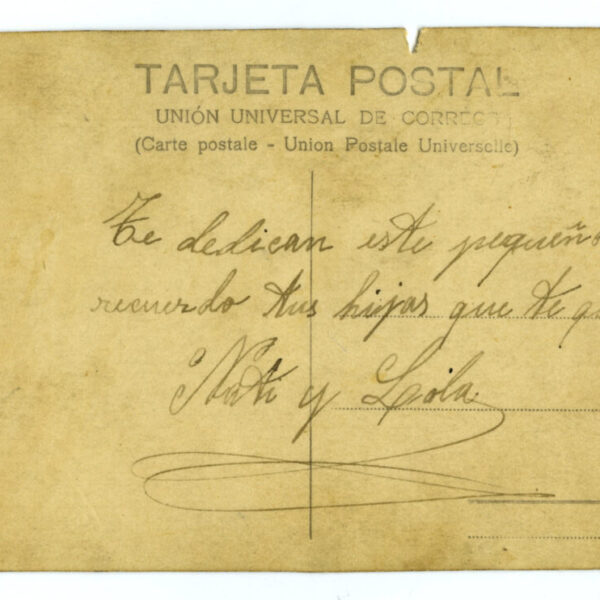 TARJETA POSTAL
UNIÓN UNIVERSAL DE CORREOS
(Carte postale - Union Postale Universelle)
Te dedican este pequeño
recuerdo tus hijas que te
Nati y Lola